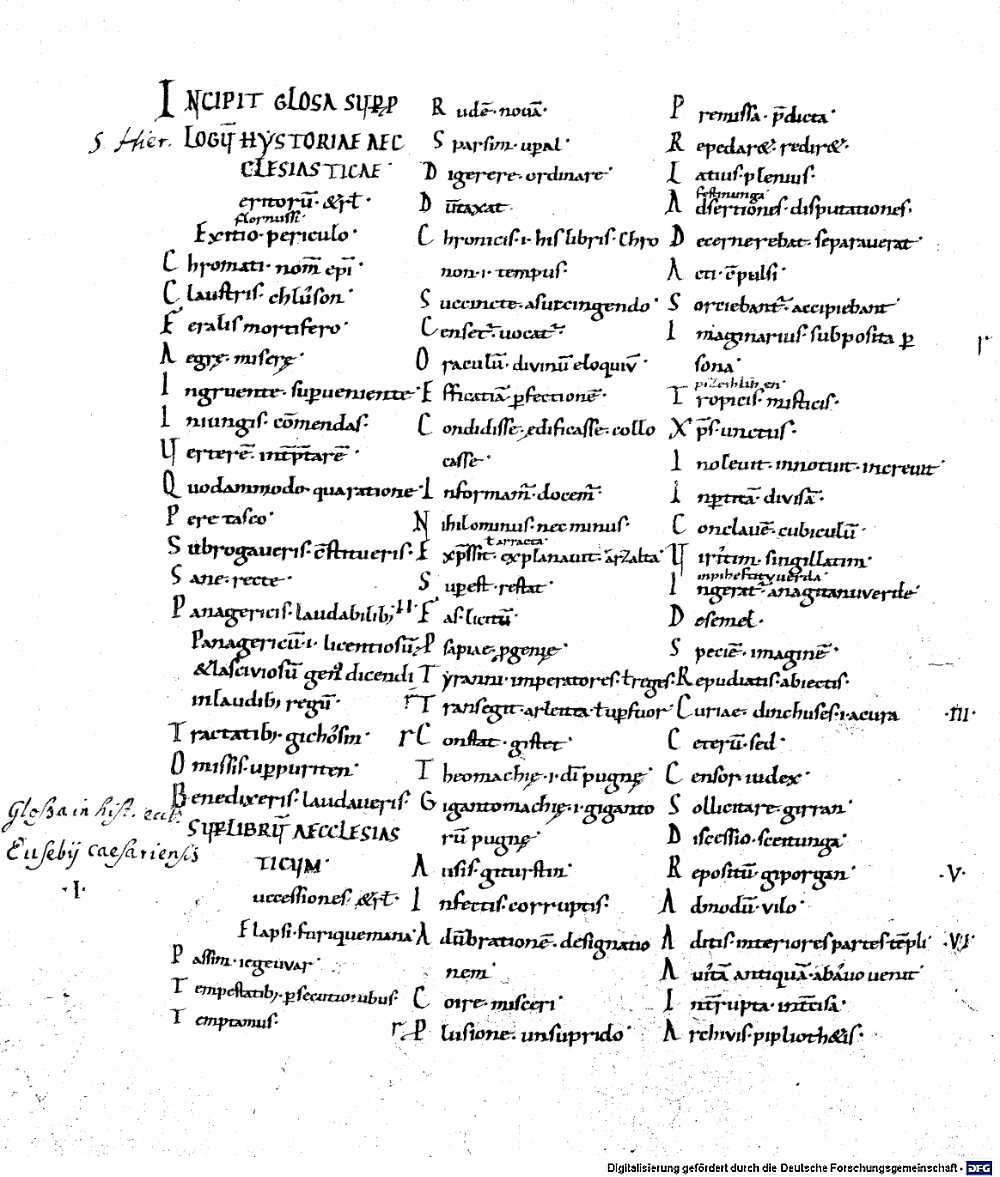 INCIPIT GLOSA SUP P
S. Hier. LOGŪ HYSTORIAE AEC
CLESIASTICAE
eritorū · &rł ·
flornussi
Exitio · periculo ·
Chromati · nom̄ ep̄i ·
Claustris · chlúson ·
Feralis mortifero ·
Aegrę · miserę ·
Ingruente · supueniente ·
Iniungis · cōmendas ·
Uerterē · int̄p̄tarē ·
Quodammodo · quaratione ·
Pere tasco ·
Subrogaueris · c̄stitueris ·
Sane · recte ·
Panagericis · laudabilib;
Panagericū · i · licentiosū
& lasciviosū gen⁹ dicendi
inlaudib; regū ·
Tractatib; gichósin ·
Omissis · uppuriten ·
Benedixeris · laudaueris
Glossa in hist. eccl.
Eusebij caesariensis
SUP LIBRŪ AECCLESIAS
TICUM
· I ·
uccessiones · &rł ·
Elapsi · furiquemana ·
Passim · iegeuuar ·
Tempestatib; psecutionibus ·
Temptamus ·
Rudē · nouā ·
Sparsim · upal ·
Digerere · ordinare ·
Dūtaxat ·
Chronicis · i · his libris · Chro
non · i · tempus ·
Succincte · a succingendo ·
Censet᷑ · uocat᷑ ·
Oraculū · divinū eloquiū ·
Efficatiā · pfectionē ·
Condidisse · edificasse · collo
casse ·
Informam᷑ · docem᷑ ·
Nihilominus · nec minus ·
ł arracta ·
Exp̄ssit · explanauit · arzalta ·
Supest · restat ·
Fas · licitū ·
Psapiae · pgenię ·
Tyranni · imperatores · ł reges ·
Transegit · arlenta ł upfuor ·
Constat · gistet ·
Theomachię · i · dī pugnę ·
Gigantomachię · i · giganto
rū pugnę ·
Ausis · giturstin ·
Infectis · corruptis ·
Adūbrationē · designatio
nem ·
Coire · misceri ·
Plusione · unsuprido ·
Premissa · p̄dicta ·
Repedar& · redir& ·
Latius · plenius ·
festinunga
Adsertiones · disputationes ·
Decernerebat · separauerat ·
Acti · c̄pulsi ·
Sorciebant᷑ · accipiebant ·
Imaginarius · subposita p
sona ·
Tropicis · misticis ·
Xp̄s · unctus ·
Inoleuit · innotuit · increuit ·
Inptitā · divisā ·
Conclauē · cubiculū ·
Uiritim · singillatim ·
Ingerat · anagitanuuerde ·
Desemel ·
Speciē · imaginē ·
Repudiatis · abiectis ·
Curiae · dinchuses · i · a cura
· III ·
Ceterū · sed ·
Censor · iudex ·
Sollicitare · girran ·
Discessio · sceitunga ·
Repositū · giporgan ·
· V ·
Admodū · vilo ·
Aditis · interiores partes tēpli
· VI ·
Auitā antiquā · ab auo uenit ·
Int᷑rupta · intc̄isa ·
Archivis · pipliothecis ·
Digitalisierung gefördert durch die Deutsche Forschungsgemeinschaft - DFG